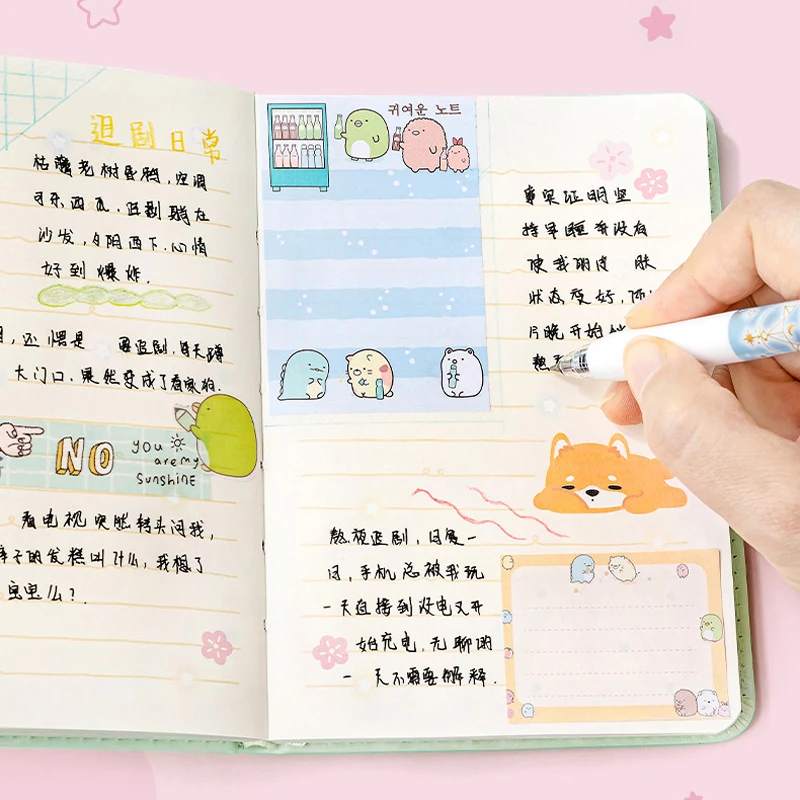 追剧日常
枯藤老树昏鸦,空调
西瓜,追剧躺在
沙发,夕阳西下,心情
好到爆炸.
还惯是 要追剧,每天蹲
大门口,果然变成了看家狗.
NO
you
are my
SunshiNE
看电视突然转头问我,
子的发糕叫什么,我想了
귀여운 노트
事实证明坚
持早睡并没有
使我的皮 肤
状态变好,
片晚开始
熬
熬夜追剧,日复一
日,手机总被我玩
一天直接到没电又开
始充电,无聊的
一 天不需要解释.